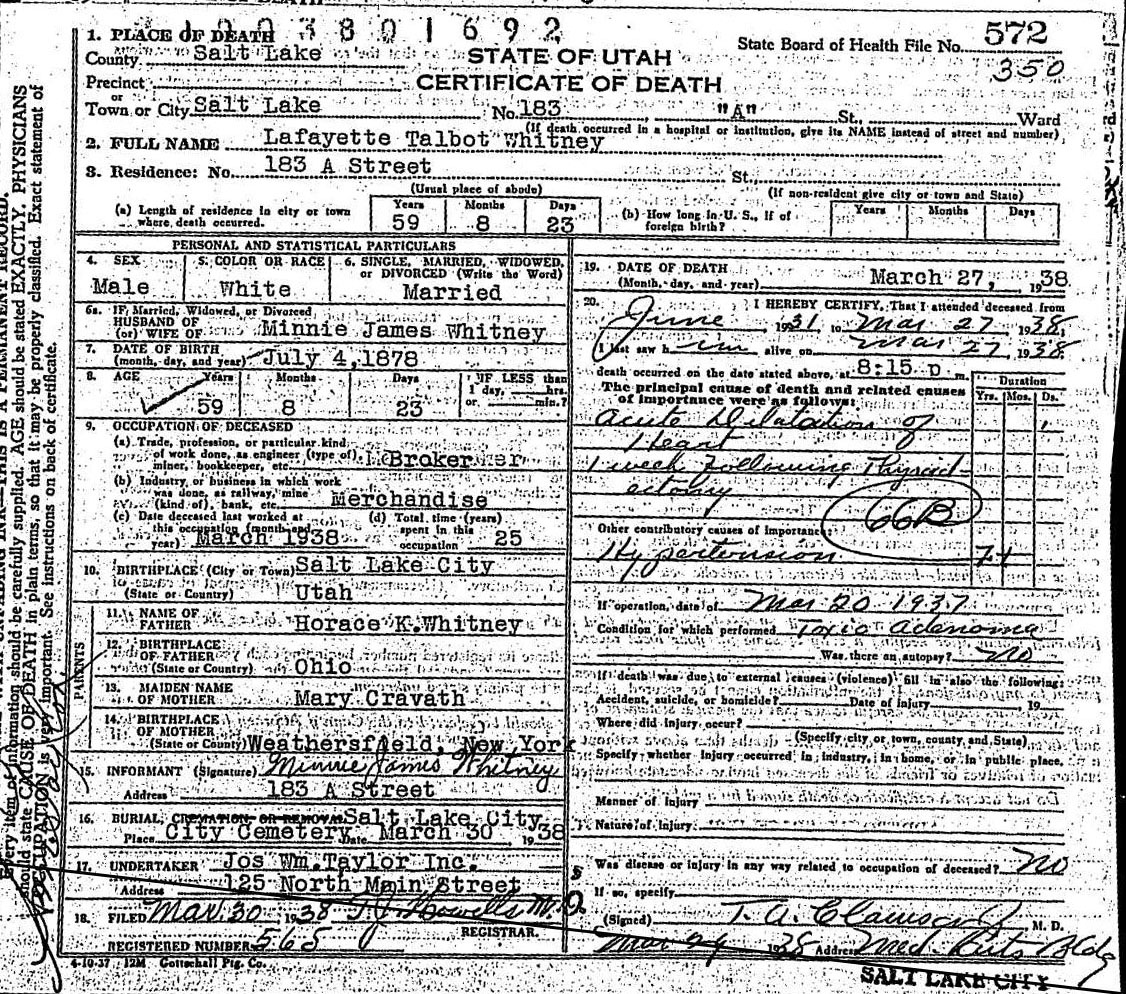 1003801692
1. PLACE OF DEATH
State Board of Health File No. 572
County Salt Lake
STATE OF UTAH
350
Precinct
CERTIFICATE OF DEATH
or
Town or City Salt Lake No. 183 "A" St., Ward
(If death occurred in a hospital or institution, give its NAME instead of street and number)
2. FULL NAME Lafayette Talbot Whitney
3. Residence: No. 183 A Street St.,
(Usual place of abode) (If non-resident give city or town and State)
(a) Length of residence in city or town where death occurred. Years 59 Months 8 Days 23
(b) How long in U. S., if of foreign birth? Years Months Days
PERSONAL AND STATISTICAL PARTICULARS
4. SEX Male
5. COLOR OR RACE White
6. SINGLE, MARRIED, WIDOWED, or DIVORCED (Write the Word) Married
6a. If Married, Widowed, or Divorced
HUSBAND OF
(or) WIFE OF Minnie James Whitney
7. DATE OF BIRTH
(month, day, and year) July 4, 1878
8. AGE Years 59 Months 8 Days 23 IF LESS than 1 day, hrs. or min.?
9. OCCUPATION OF DECEASED
(a) Trade, profession, or particular kind
of work done, as engineer (type of),
miner, bookkeeper, etc. Broker
(b) Industry, or business in which work
was done, as railway, mine
(kind of), bank, etc. Merchandise
(c) Date deceased last worked at
this occupation (month and
year) March 1938
(d) Total time (years)
spent in this
occupation 25
10. BIRTHPLACE (City or Town) Salt Lake City
(State or Country) Utah
PARENTS
11. NAME OF
FATHER Horace K. Whitney
12. BIRTHPLACE
OF FATHER
(State or Country) Ohio
13. MAIDEN NAME
OF MOTHER Mary Cravath
14. BIRTHPLACE
OF MOTHER
(State or County) Weathersfield, New York
15. INFORMANT (Signature) Minnie James Whitney
Address 183 A Street
16. BURIAL, CREMATION OR REMOVAL Salt Lake City
Place City Cemetery Date March 30 1938
17. UNDERTAKER Jos Wm. Taylor Inc.
Address 125 North Main Street
18. FILED Mar 30 1938 T. J. Howells M. D.
REGISTRAR.
REGISTERED NUMBER 565
4-10-37 12M Gottschall Ptg. Co.
19. DATE OF DEATH
(Month, day, and year) March 27, 1938
20. I HEREBY CERTIFY, That I attended deceased from
June 1931 to Mar 27 1938,
I last saw him alive on Mar 27, 1938
death occurred on the date stated above, at 8:15 p m.
Duration
Yrs. Mos. Ds.
The principal cause of death and related causes
of importance were as follows:
Acute Dilatation of 1
Heart
1 week Following Thyroid
ectomy
66B
Other contributory causes of importance
Hypertension 7+
If operation, date of Mar 20 1937
Condition for which performed Toxic Adenoma
Was there an autopsy? No
If death was due to external causes (violence) fill in also the following:
Accident, suicide, or homicide? Date of injury 19
Where did injury occur?
(Specify city or town, county and State)
Specify whether injury occurred in industry, in home, or in public place.
Manner of injury
Nature of injury
Was disease or injury in any way related to occupation of deceased? No
If so, specify
(Signed) T. A. Clawson Jr M. D.
Mar 29 1938 Address Med. Arts Bldg
SALT LAKE CITY
THIS IS A PERMANENT RECORD.
Every item of information should be carefully supplied. AGE should be stated EXACTLY. PHYSICIANS
should state CAUSE OF DEATH in plain terms, so that it may be properly classified. Exact statement of
OCCUPATION is very important. See instructions on back of certificate.